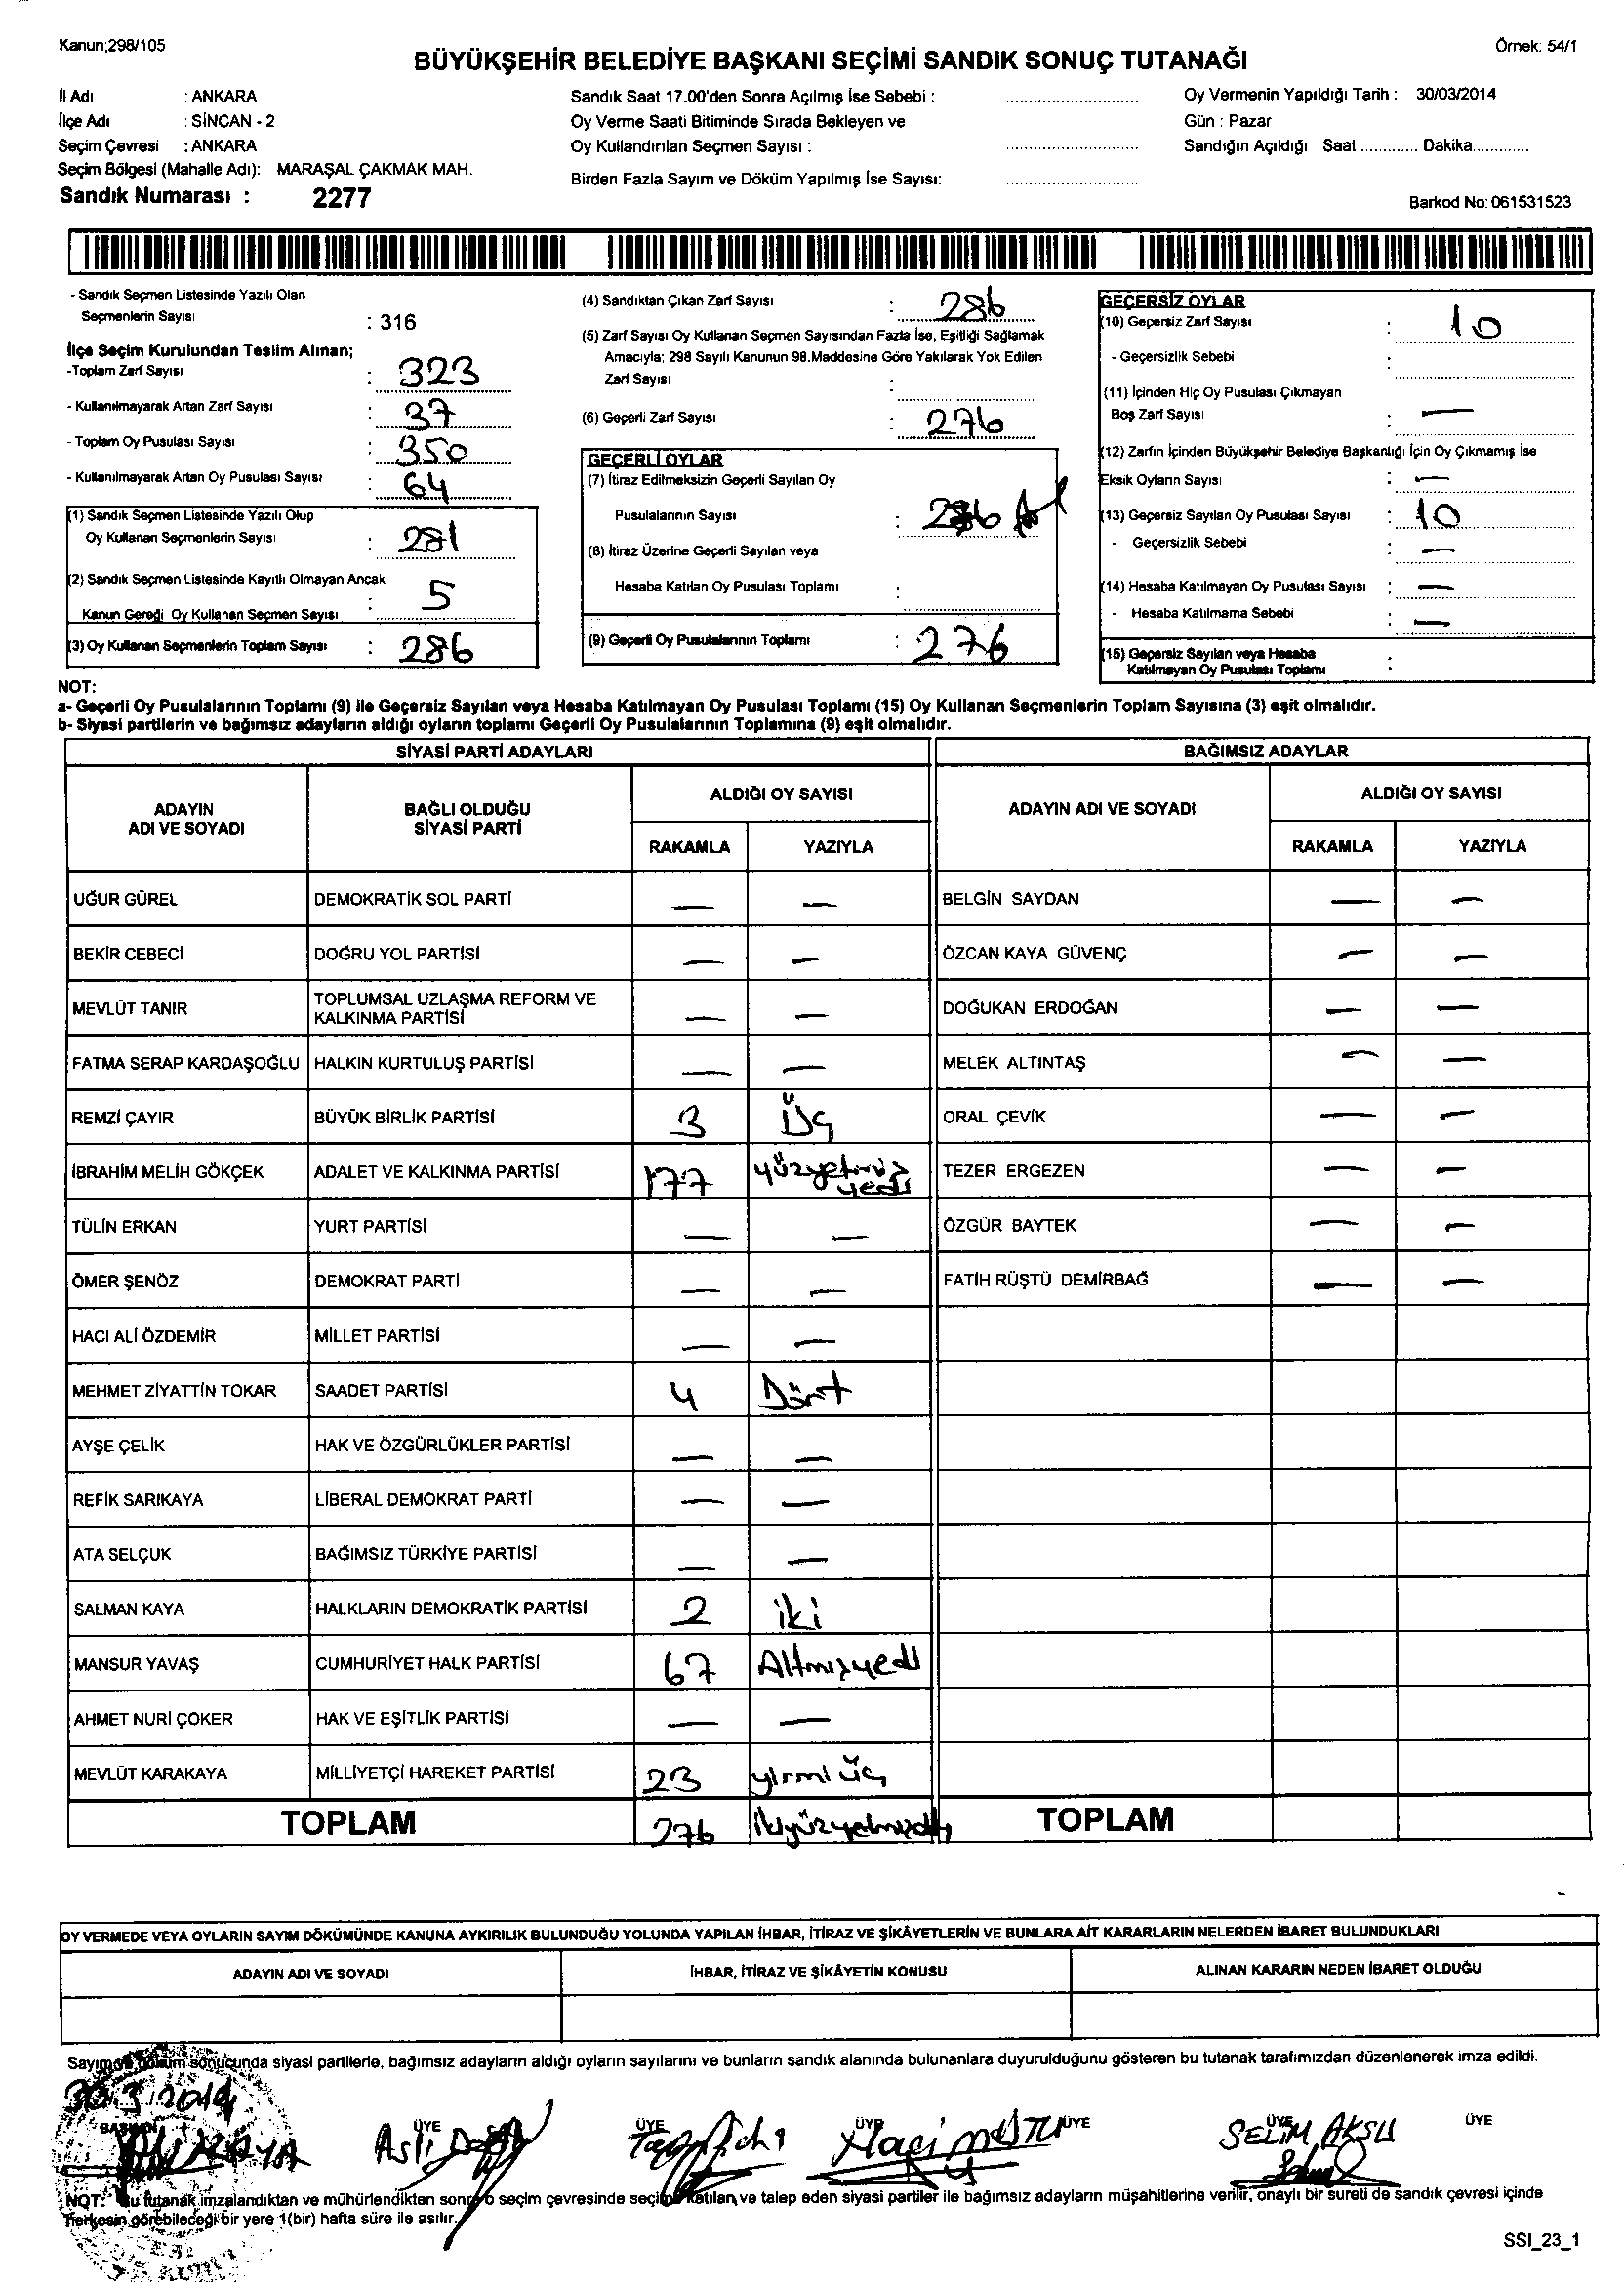 Kanun;298/105
Örnek: 54/1
BÜYÜKŞEHİR BELEDİYE BAŞKANI SEÇİMİ SANDIK SONUÇ TUTANAĞI
İl Adı : ANKARA
İlçe Adı : SİNCAN - 2
Seçim Çevresi : ANKARA
Seçim Bölgesi (Mahalle Adı): MARAŞAL ÇAKMAK MAH.
Sandık Numarası : 2277
Sandık Saat 17.00'den Sonra Açılmış İse Sebebi :
Oy Verme Saati Bitiminde Sırada Bekleyen ve
Oy Kullandırılan Seçmen Sayısı :
Birden Fazla Sayım ve Döküm Yapılmış İse Sayısı:
Oy Vermenin Yapıldığı Tarih : 30/03/2014
Gün : Pazar
Sandığın Açıldığı Saat :........... Dakika:...........
Barkod No: 061531523
- Sandık Seçmen Listesinde Yazılı Olan
Seçmenlerin Sayısı : 316
İlçe Seçim Kurulundan Teslim Alınan;
-Toplam Zarf Sayısı : 323
- Kullanılmayarak Artan Zarf Sayısı : 37
- Toplam Oy Pusulası Sayısı : 350
- Kullanılmayarak Artan Oy Pusulası Sayısı : 64
(1) Sandık Seçmen Listesinde Yazılı Olup
Oy Kullanan Seçmenlerin Sayısı : 281
(2) Sandık Seçmen Listesinde Kayıtlı Olmayan Ancak
Kanun Gereği Oy Kullanan Seçmen Sayısı : 5
(3) Oy Kullanan Seçmenlerin Toplam Sayısı : 286
(4) Sandıktan Çıkan Zarf Sayısı : 286
(5) Zarf Sayısı Oy Kullanan Seçmen Sayısından Fazla İse, Eşitliği Sağlamak
Amacıyla; 298 Sayılı Kanunun 98.Maddesine Göre Yakılarak Yok Edilen
Zarf Sayısı :
(6) Geçerli Zarf Sayısı : 276
GEÇERLİ OYLAR
(7) İtiraz Edilmeksizin Geçerli Sayılan Oy
Pusulalarının Sayısı : 276
(8) İtiraz Üzerine Geçerli Sayılan veya
Hesaba Katılan Oy Pusulası Toplamı :
(9) Geçerli Oy Pusulalarının Toplamı : 276
GEÇERSİZ OYLAR
(10) Geçersiz Zarf Sayısı : 10
- Geçersizlik Sebebi :
(11) İçinden Hiç Oy Pusulası Çıkmayan
Boş Zarf Sayısı : —
(12) Zarfın İçinden Büyükşehir Belediye Başkanlığı İçin Oy Çıkmamış İse
Eksik Oyların Sayısı : —
(13) Geçersiz Sayılan Oy Pusulası Sayısı : 10
- Geçersizlik Sebebi : —
(14) Hesaba Katılmayan Oy Pusulası Sayısı : —
- Hesaba Katılmama Sebebi : —
(15) Geçersiz Sayılan veya Hesaba
Katılmayan Oy Pusulası Toplamı :
NOT:
a- Geçerli Oy Pusulalarının Toplamı (9) ile Geçersiz Sayılan veya Hesaba Katılmayan Oy Pusulası Toplamı (15) Oy Kullanan Seçmenlerin Toplam Sayısına (3) eşit olmalıdır.
b- Siyasi partilerin ve bağımsız adayların aldığı oyların toplamı Geçerli Oy Pusulalarının Toplamına (9) eşit olmalıdır.
SİYASİ PARTİ ADAYLARI
BAĞIMSIZ ADAYLAR
ADAYIN
ADI VE SOYADI
BAĞLI OLDUĞU
SİYASİ PARTİ
ALDIĞI OY SAYISI
RAKAMLA YAZIYLA
ADAYIN ADI VE SOYADI
ALDIĞI OY SAYISI
RAKAMLA YAZIYLA
UĞUR GÜREL DEMOKRATİK SOL PARTİ — — BELGİN SAYDAN — —
BEKİR CEBECİ DOĞRU YOL PARTİSİ — — ÖZCAN KAYA GÜVENÇ — —
MEVLÜT TANIR TOPLUMSAL UZLAŞMA REFORM VE
KALKINMA PARTİSİ — — DOĞUKAN ERDOĞAN — —
FATMA SERAP KARDAŞOĞLU HALKIN KURTULUŞ PARTİSİ — — MELEK ALTINTAŞ — —
REMZİ ÇAYIR BÜYÜK BİRLİK PARTİSİ 3 Üç ORAL ÇEVİK — —
İBRAHİM MELİH GÖKÇEK ADALET VE KALKINMA PARTİSİ 177 yüzyetmiş
yedi TEZER ERGEZEN — —
TÜLİN ERKAN YURT PARTİSİ — — ÖZGÜR BAYTEK — —
ÖMER ŞENÖZ DEMOKRAT PARTİ — — FATİH RÜŞTÜ DEMİRBAĞ — —
HACI ALİ ÖZDEMİR MİLLET PARTİSİ — —
MEHMET ZİYATTİN TOKAR SAADET PARTİSİ 4 Dört
AYŞE ÇELİK HAK VE ÖZGÜRLÜKLER PARTİSİ — —
REFİK SARIKAYA LİBERAL DEMOKRAT PARTİ — —
ATA SELÇUK BAĞIMSIZ TÜRKİYE PARTİSİ — —
SALMAN KAYA HALKLARIN DEMOKRATİK PARTİSİ 2 iki
MANSUR YAVAŞ CUMHURİYET HALK PARTİSİ 67 Altmışyedi
AHMET NURİ ÇOKER HAK VE EŞİTLİK PARTİSİ — —
MEVLÜT KARAKAYA MİLLİYETÇİ HAREKET PARTİSİ 23 yirmi üç
TOPLAM 276 TOPLAM
OY VERMEDE VEYA OYLARIN SAYIM DÖKÜMÜNDE KANUNA AYKIRILIK BULUNDUĞU YOLUNDA YAPILAN İHBAR, İTİRAZ VE ŞİKÂYETLERİN VE BUNLARA AİT KARARLARIN NELERDEN İBARET BULUNDUKLARI
ADAYIN ADI VE SOYADI İHBAR, İTİRAZ VE ŞİKÂYETİN KONUSU ALINAN KARARIN NEDEN İBARET OLDUĞU
Sayım ve döküm sonucunda siyasi partilerle, bağımsız adayların aldığı oyların sayılarını ve bunların sandık alanında bulunanlara duyurulduğunu gösteren bu tutanak tarafımızdan düzenlenerek imza edildi.
30.3.2014
BAŞKAN ÜYE ÜYE ÜYE ÜYE ÜYE ÜYE
KAYA Aslı Hacı SELİM AKSU
NOT: Bu tutanak imzalandıktan ve mühürlendikten sonra o seçim çevresinde seçime katılan ve talep eden siyasi partiler ile bağımsız adayların müşahitlerine verilir, onaylı bir sureti de sandık çevresi içinde
herkesin görebileceği bir yere 1(bir) hafta süre ile asılır.
SSI_23_1